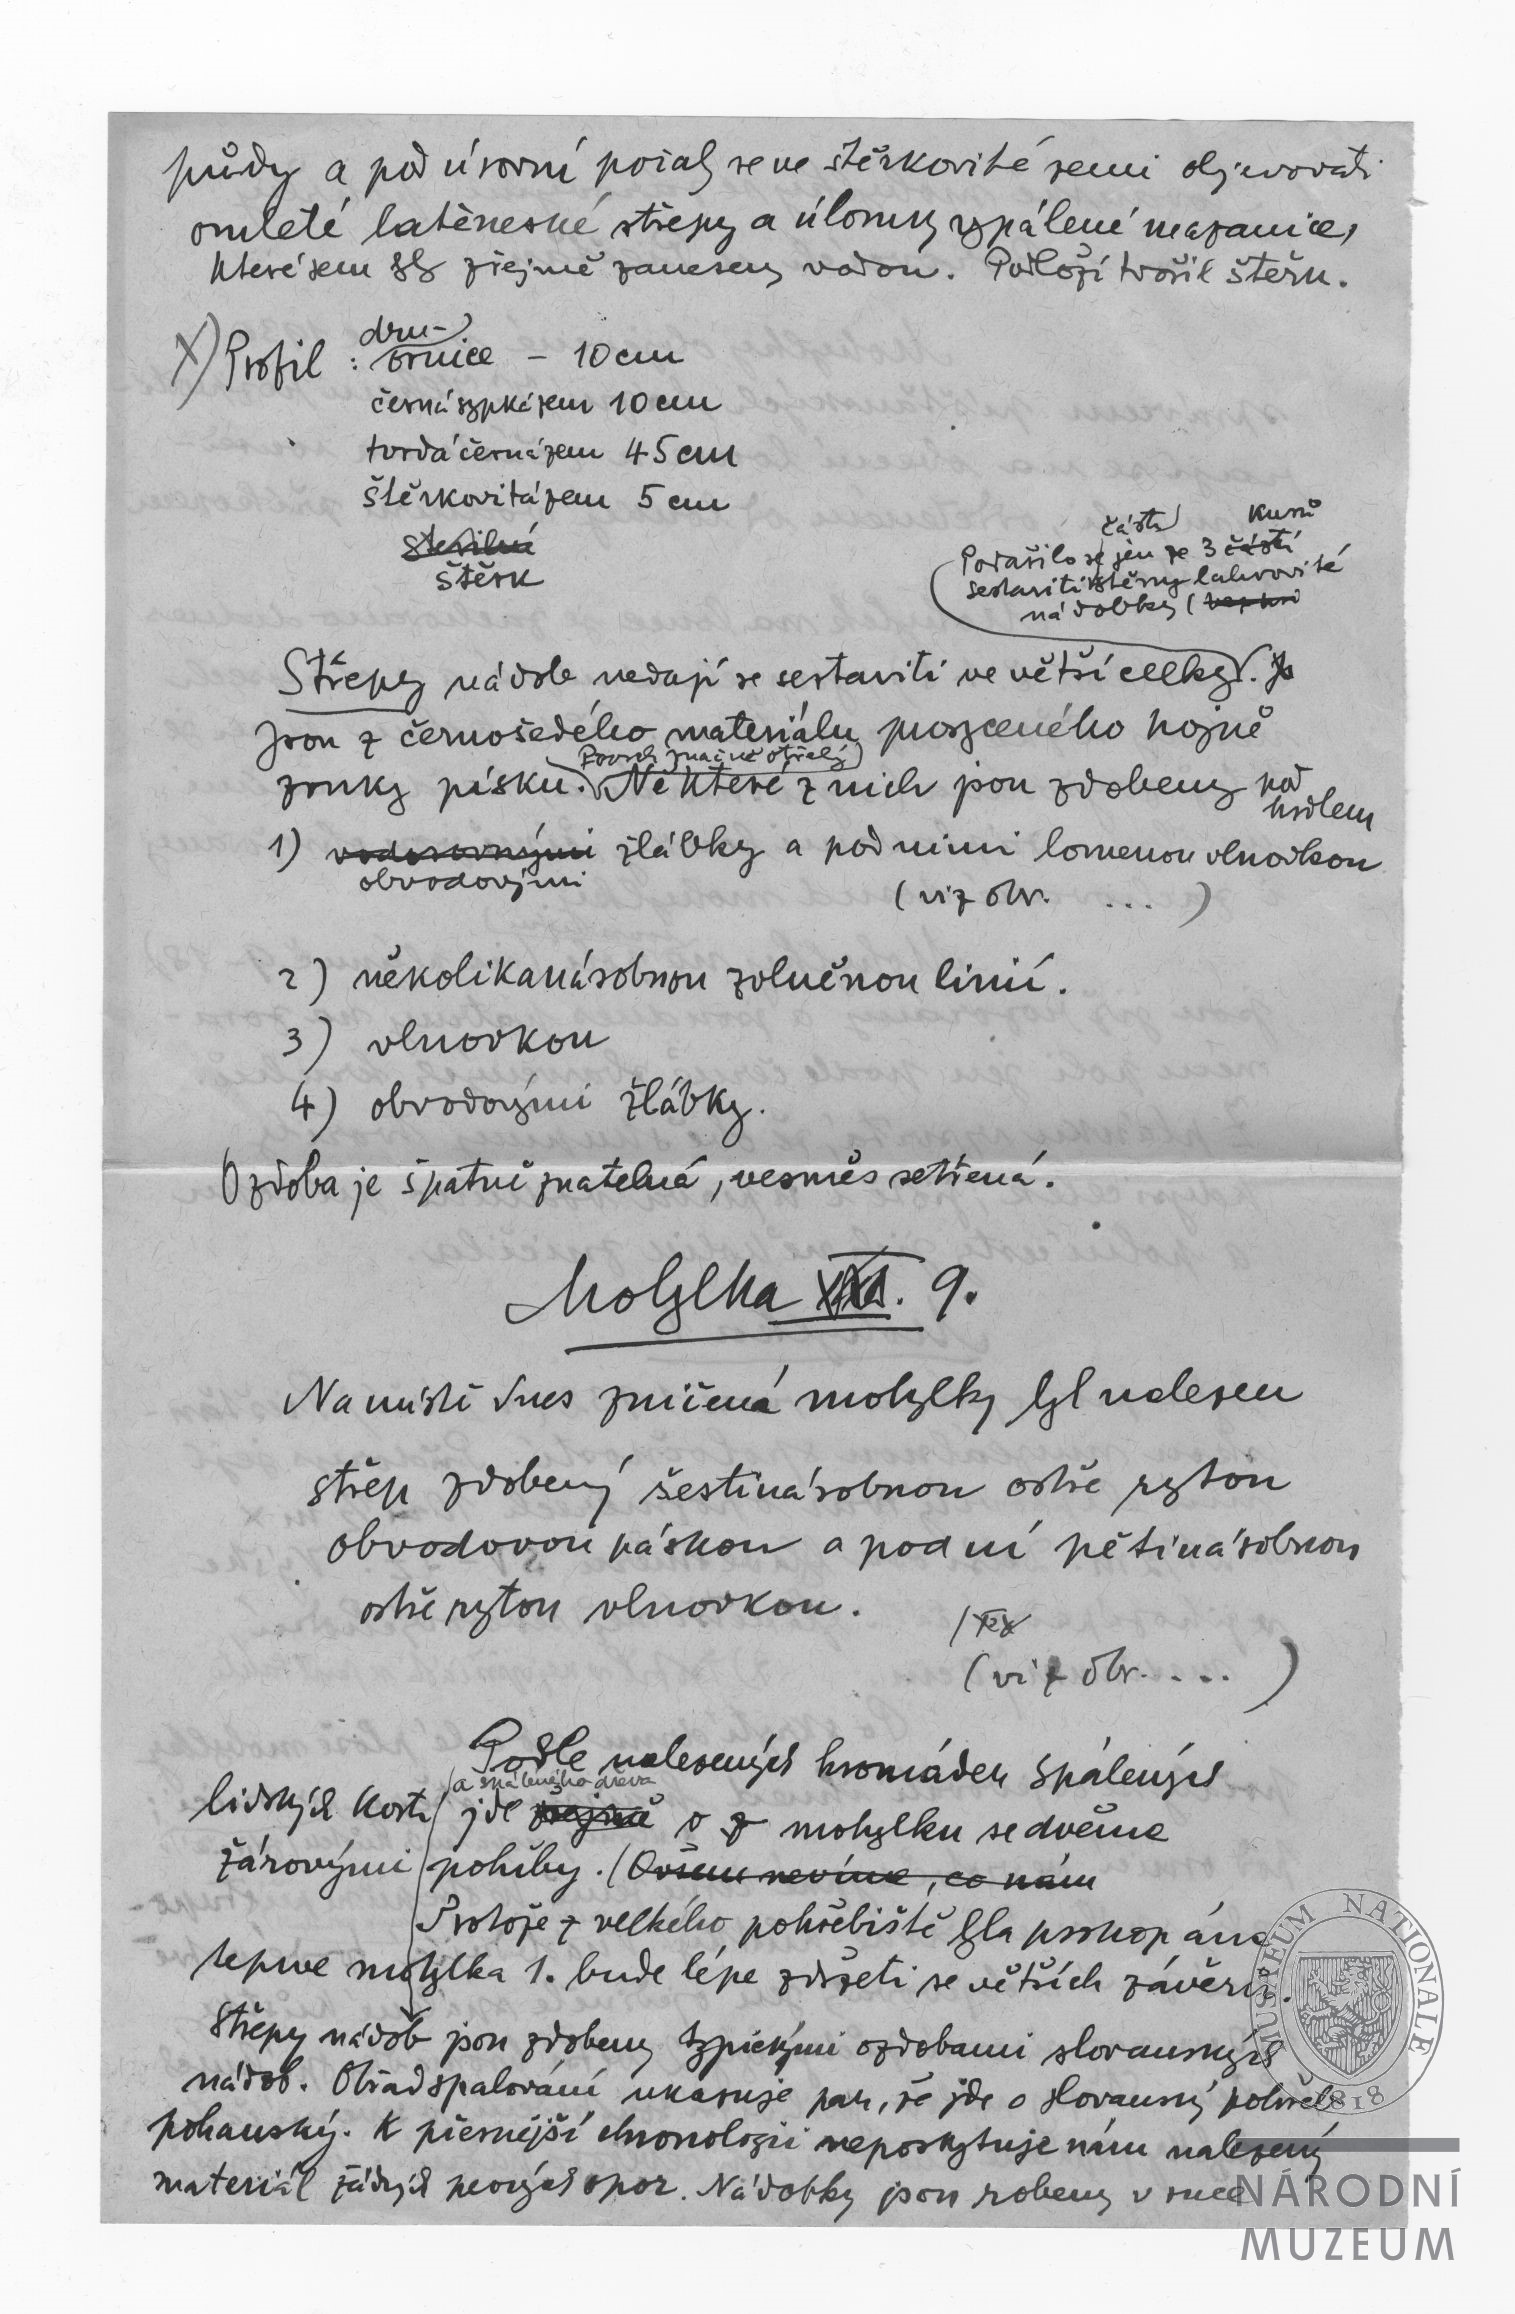 půdy a pod úrovní počaly se ve štěrkovité zemi objevovati
omleté laténeské střepy a úlomky vypálené mazanice,
které sem byly zřejmě zaneseny vodou. Podloží tvořil štěrk.
X) Profil : ornice – 10 cm
drn-
černá sypká zem 10 cm
tvrdá černá zem 45 cm
štěrkovitá zem 5 cm
sterilní
štěrk
část kusů
Podařilo se jen ze 3 částí
sestaviti stěny lahvovité
nádobky (
Střepy nádob nedají se sestaviti ve větší celky. Js
Jsou z černošedého materiálu prosyceného hojně
Povrch značně otřelý
zrnky písku. Některé z nich jsou zdobeny pod
hrdlem
1) vodorovnými žlábky a pod nimi lomenou vlnovkou
obvodovými
(viz obr. ... )
2) několikanásobnou zvlněnou linií.
3) vlnovkou
4) obvodovými žlábky.
Ozdoba je špatně znatelná, vesměs setřená.
Mohylka 9.
Na místě dnes zničená mohylky byl nalezen
střep zdobený šestinásobnou ostře rytou
obvodovou páskou a pod ní pětinásobnou
ostře rytou vlnovkou.
(viz obr. .... )
Podle nalezených hromádek spálených
a spáleného dřeva
lidských kostí jde zřejmě o z mohylku se dvěma
žárovými pohřby. (Ovšem nevíme, co nám
Protože z velkého pohřebiště byla prokopána
teprve mohylka 1. bude lépe zdržeti se větších závěrů.
Střepy nádob jsou zdobeny typickými ozdobami slovanských
nádob. Obřad spalování ukazuje pak, že jde o slovanský pohřeb
pohanský. K přesnější chronologii neposkytuje nám nalezený
materiál žádných pevných opor. Nádobky jsou robeny v ruce
MUSEUM NATIONALE
1818
NÁRODNÍ
MUZEUM